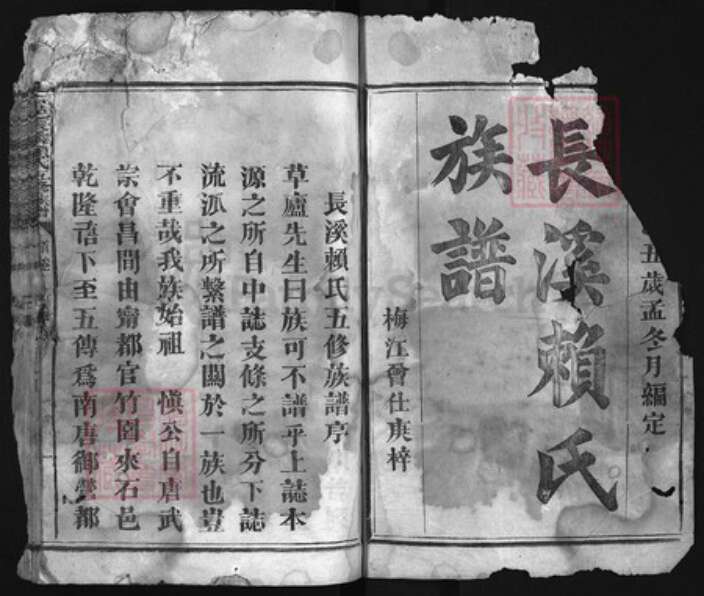 丑歲孟冬月編定
長溪賴氏
族譜
梅江曾仕庚梓
長溪賴氏五修族譜序
草廬先生曰族可不譜乎上誌本
源之所自中誌支條之所分下誌
流派之所繫譜之關於一族也豈
不重哉我族始祖 愼公自唐武
宗會昌間由甯都官竹園來石邑
乾隆 下至五傳爲南唐御營都